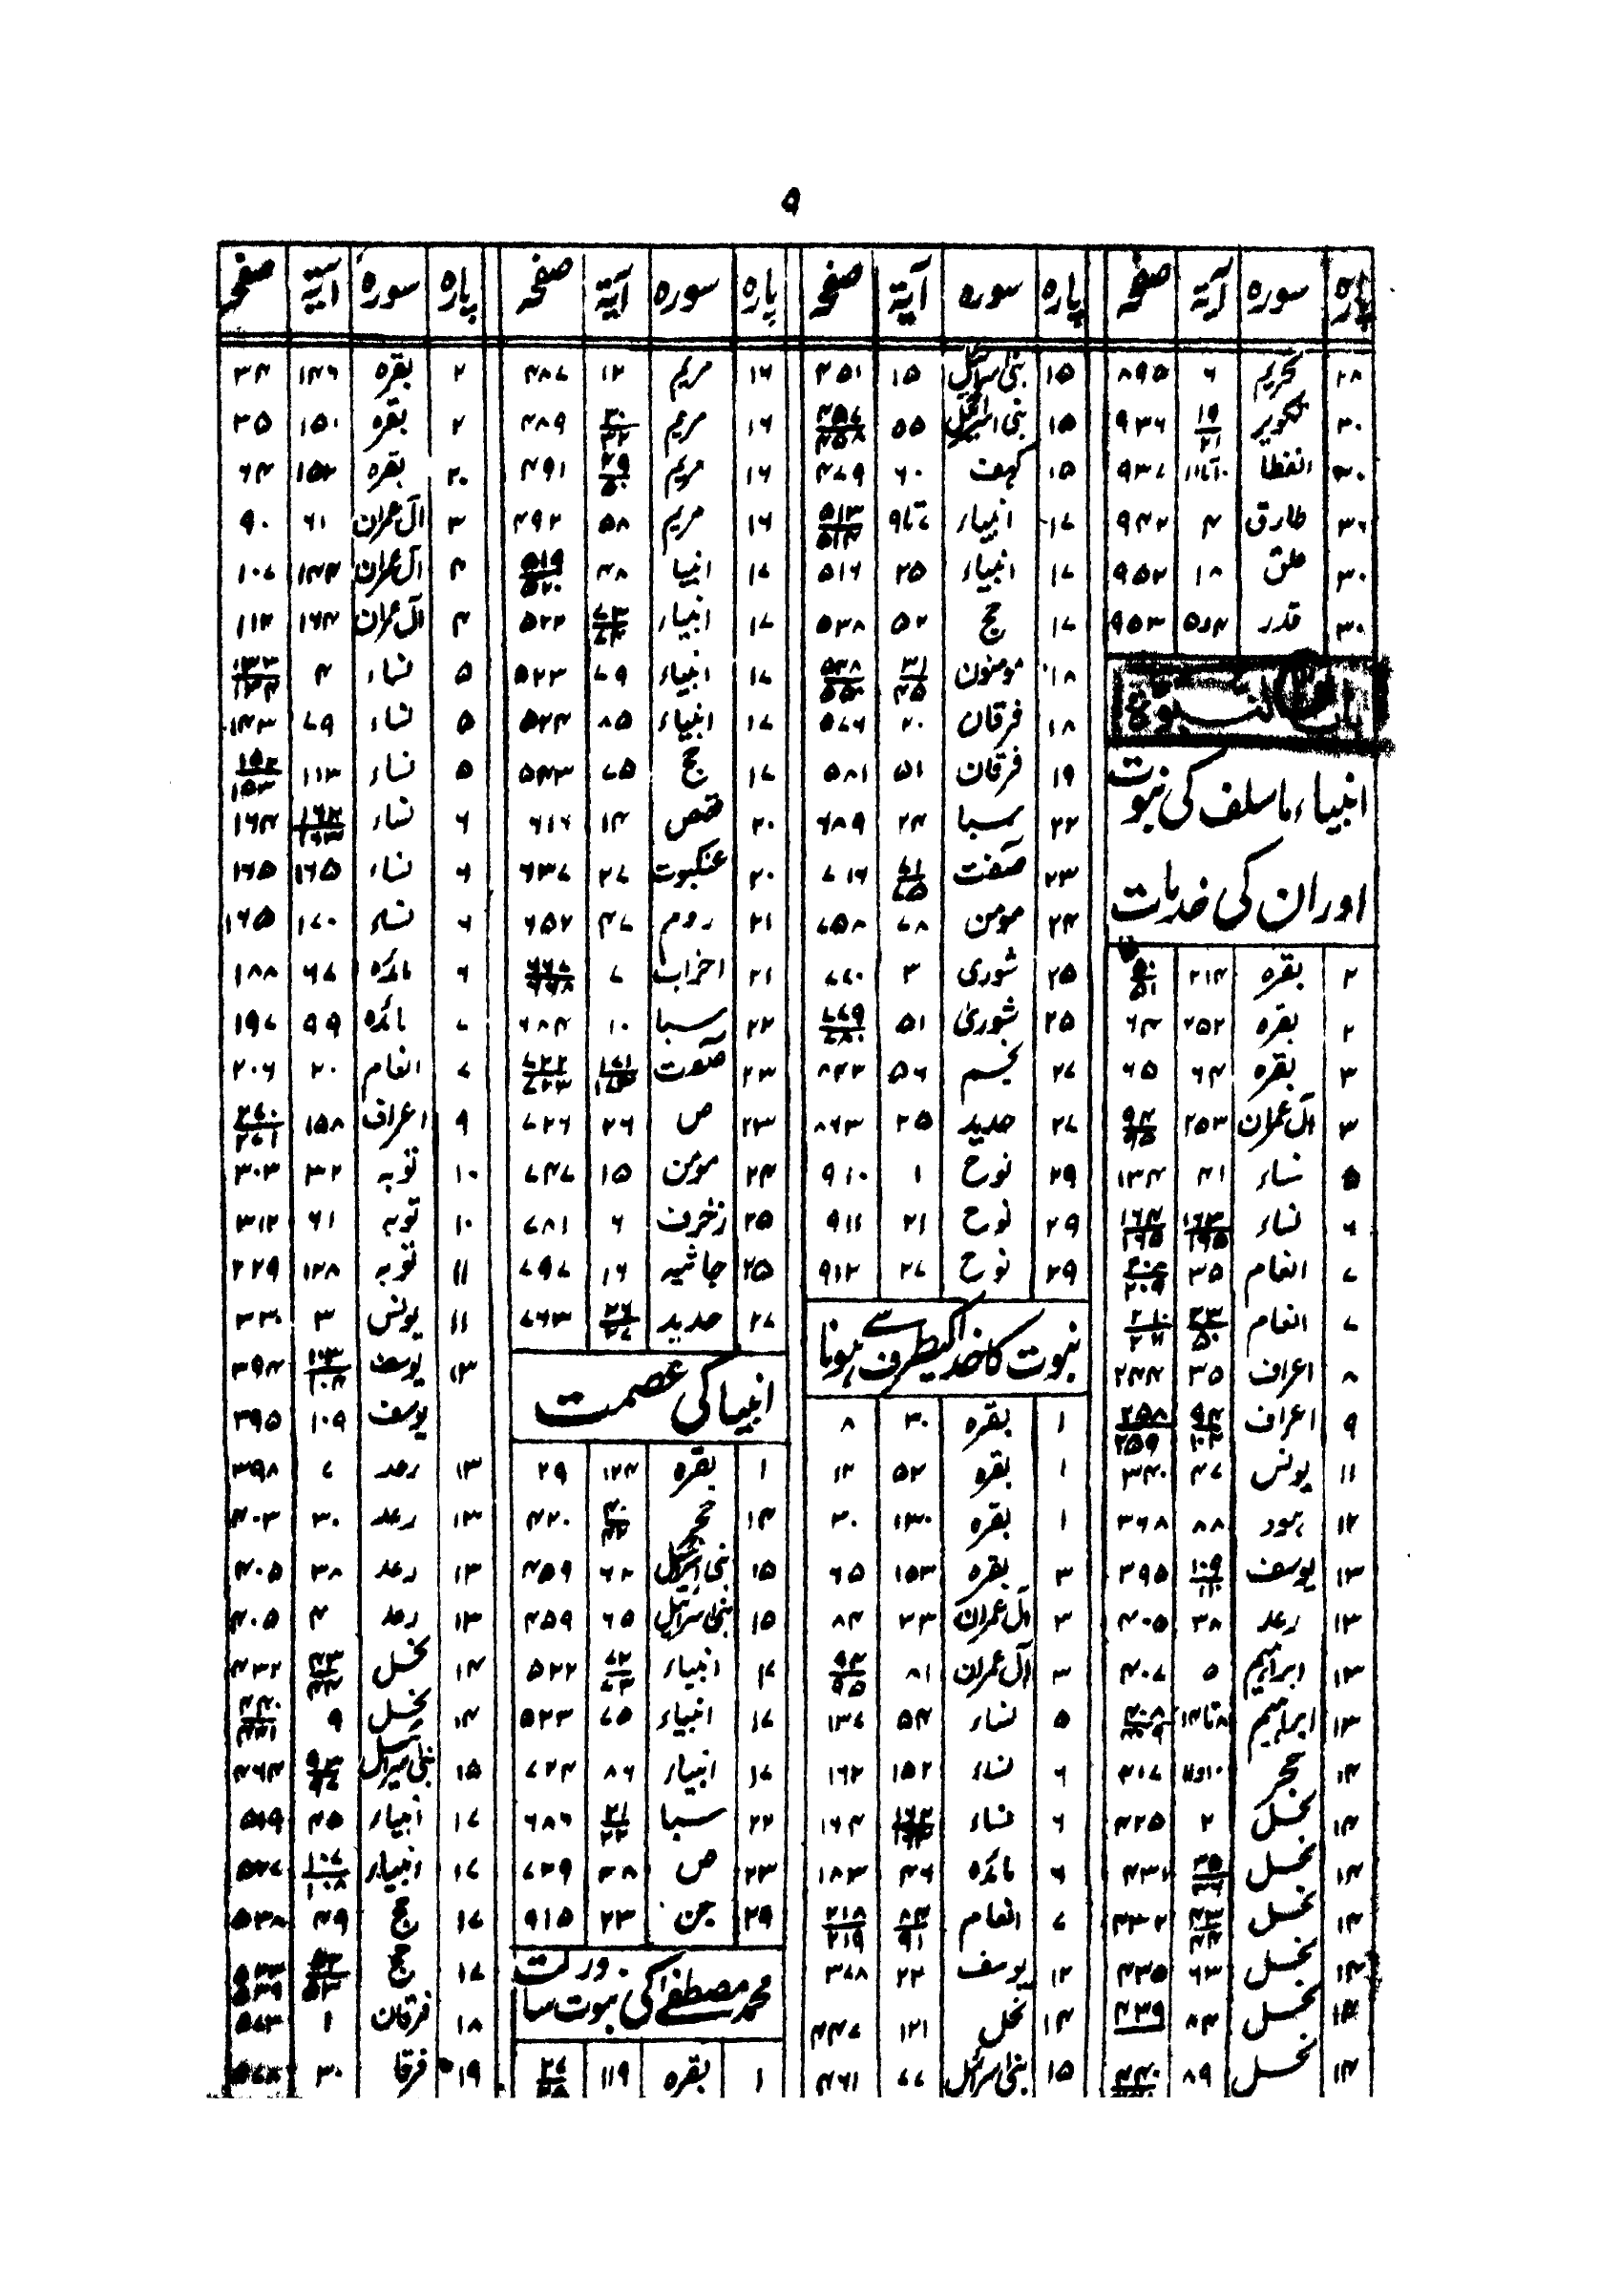 ۹
پارہ سورہ آیۃ صفحہ
۲۸ تحریم ۶ ۸۹۵
۳۰ تکویر ۱۹/۲۱ ۹۳۶
۳۰ انفطا ۱۰تا۱۱ ۹۳۷
۳۰ طارق ۴ ۹۴۲
۳۰ علق ۱۸ ۹۵۲
۳۰ قدر ۴و۵ ۹۵۳
انبیاء ماسلف کی نبوت
اور ان کی خدمات
۲ بقرہ ۲۱۴ ۵۰/۵۱
۲ بقرہ ۲۵۲ ۶۴
۳ بقرہ ۶۴ ۶۵
۳ آل عمران ۲۵۳ ۹۴/۹۵
۵ نساء ۴۱ ۱۳۴
۶ نساء ۱۶۳/۱۶۵ ۱۶۴/۱۶۵
۷ انعام ۳۵
۷ انعام ۲۱۰/۲۱۱
۸ اعراف ۳۵ ۲۴۴
۹ اعراف ۹۴/۱۰۲ ۲۵۸/۲۵۹
۱۱ یونس ۴۷ ۳۴۰
۱۲ ہود ۸۸ ۳۶۸
۱۳ یوسف ۱۰۹/۱۱۰ ۳۹۵
۱۳ رعد ۳۸ ۴۰۵
۱۳ ابراہیم ۵ ۴۰۷
۱۳ ابراہیم ۸تا۱۴ ۴۰۸/۴۰۹
۱۴ حجر ۱۰و۱۱ ۴۱۷
۱۴ نحل ۲ ۴۲۵
۱۴ نحل ۳۵/۳۶ ۴۳۱
۱۴ نحل ۴۳/۴۴ ۴۳۲
۱۴ نحل ۶۳ ۴۳۵
۱۴ نحل ۸۴ ۴۳۹
۱۴ نحل ۸۹ ۴۴۰
پارہ سورہ آیۃ صفحہ
۱۵ بنی اسرائیل ۱۵ ۴۵۱
۱۵ بنی اسرائیل ۵۵ ۴۵۷/۴۵۸
۱۵ کہف ۶۰ ۴۷۹
۱۷ انبیاء ۷تا۹ ۵۱۳/۵۱۴
۱۷ انبیاء ۲۵ ۵۱۶
۱۷ حج ۵۲ ۵۳۸
۱۸ مومنون ۳۱/۴۵ ۵۴۸/۵۵۰
۱۸ فرقان ۲۰ ۵۷۶
۱۹ فرقان ۵۱ ۵۸۱
۲۲ سبا ۲۴ ۶۸۹
۲۳ صٓفت ۷۱/۷۵ ۷۱۶
۲۴ مومن ۷۸ ۷۵۸
۲۵ شوری ۳ ۷۷۰
۲۵ شوریٰ ۵۱ ۷۷۹/۷۸۰
۲۷ نجم ۵۶ ۸۴۳
۲۷ حدید ۲۵ ۸۶۳
۲۹ نوح ۱ ۹۱۰
۲۹ نوح ۲۱ ۹۱۱
۲۹ نوح ۲۷ ۹۱۲
نبوت کا خدا کیطرف سے ہونا
۱ بقرہ ۳۰ ۸
۱ بقرہ ۵۲ ۱۲
۱ بقرہ ۱۳۰ ۳۰
۳ بقرہ ۱۵۳ ۶۵
۳ آل عمران ۳۳ ۸۴
۳ آل عمران ۸۱ ۹۴/۹۵
۵ نساء ۵۴ ۱۳۷
۶ نساء ۱۵۲ ۱۶۲
۶ نساء ۱۶۴
۶ مائدہ ۴۶ ۱۸۳
۷ انعام ۸۴/۹۱ ۲۱۸/۲۱۹
۱۲ یوسف ۲۲ ۳۷۸
۱۴ نحل ۱۲۱ ۴۴۷
۱۵ بنی اسرائیل ۷۷ ۴۶۱
پارہ سورہ آیۃ صفحہ
۱۶ مریم ۱۲ ۴۸۷
۱۶ مریم ۳۰/۳۲ ۴۸۹
۱۶ مریم ۴۹/۵۰ ۴۹۱
۱۶ مریم ۵۸ ۴۹۲
۱۷ انبیا ۴۸ ۵۱۹/۵۲۰
۱۷ انبیاء ۷۳/۷۴ ۵۲۲
۱۷ انبیاء ۷۹ ۵۲۳
۱۷ انبیاء ۸۵ ۵۲۴
۱۷ حج ۷۵ ۵۴۳
۲۰ قصص ۱۴ ۶۱۶
۲۰ عنکبوت ۲۷ ۶۳۷
۲۱ روم ۴۷ ۶۵۲
۲۱ احزاب ۷ ۶۶۷/۶۶۸
۲۲ سبا ۱۰ ۶۸۴
۲۳ صٓفت ۱۷۱/۱۷۳ ۷۲۲/۷۲۳
۲۳ ص ۲۶ ۷۲۶
۲۴ مومن ۱۵ ۷۴۷
۲۵ زخرف ۶ ۷۸۱
۲۵ جاثیہ ۱۶ ۷۹۷
۲۷ حدید ۲۶/۲۷ ۷۶۳
انبیا کی عصمت
۱ بقرہ ۱۲۴ ۲۹
۱۴ حجر ۴۰/۴۲ ۴۲۰
۱۵ بنی اسرائیل ۶۲ ۴۵۹
۱۵ بنی اسرائیل ۶۵ ۴۵۹
۱۷ انبیاء ۷۲/۷۳ ۵۲۲
۱۷ انبیاء ۷۵ ۵۲۳
۱۷ انبیاء ۸۶ ۷۲۴
۲۲ سبا ۲۱/۲۲ ۶۸۶
۲۳ ص ۳۸ ۷۲۹
۲۹ جن ۲۳ ۹۱۵
محمد مصطفےٰ کی نبوت
۱ بقرہ ۱۱۹ ۲۷/۲۸
پارہ سورہ آیۃ صفحہ
۲ بقرہ ۱۴۶ ۳۴
۲ بقرہ ۱۵۰ ۳۵
۲۰ بقرہ ۱۵۲ ۶۴
۳ آل عمران ۶۱ ۹۰
۴ آل عمران ۱۴۴ ۱۰۷
۴ آل عمران ۱۶۴ ۱۱۲
۵ نساء ۴ ۱۳۳/۱۳۴
۵ نساء ۷۹ ۱۴۳
۵ نساء ۱۱۳ ۱۵۲/۱۵۳
۶ نساء ۱۶۴
۶ نساء ۱۶۵ ۱۶۵
۶ نساء ۱۷۰ ۱۶۵
۶ مائدہ ۶۷ ۱۸۸
۷ مائدہ ۹۹ ۱۹۷
۷ انعام ۲۰ ۲۰۶
۹ اعراف ۱۵۸ ۲۷۰/۲۷۱
۱۰ توبہ ۳۲ ۳۰۳
۱۰ توبہ ۶۱ ۳۱۲
۱۱ توبہ ۱۲۸ ۲۲۹
۱۱ یونس ۳ ۳۳۰
۱۳ یوسف ۱۰۳/۱۰۴ ۳۹۴
یوسف ۱۰۹ ۳۹۵
۱۳ رعد ۷ ۳۹۸
۱۳ رعد ۳۰ ۴۰۳
۱۳ رعد ۳۸ ۴۰۵
۱۳ رعد ۴ ۴۰۵
۱۴ نحل ۴۳/۴۴ ۴۳۲
۱۴ نحل ۹ ۴۴۰/۴۴۱
۱۵ بنی اسرائیل ۴۶۴
۱۷ انبیاء ۴۵ ۵۱۹
۱۷ انبیاء ۱۰۷/۱۰۸ ۵۲۷
۱۷ حج ۴۹ ۵۳۸
۱۷ حج
۱۸ فرقان ۱ ۵۷۳
۱۹ فرقا ۳۰ ۵۷۸